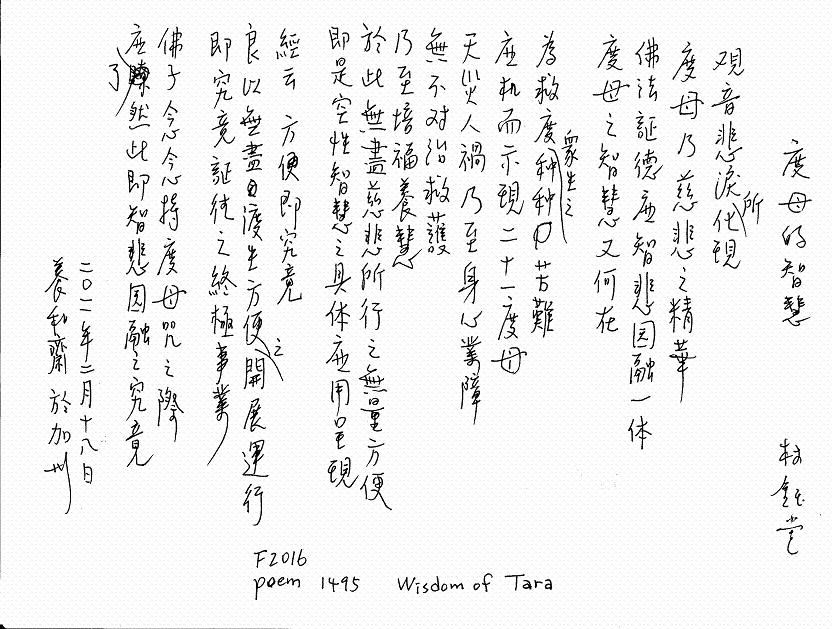 度母的智慧 林鈺堂
观音悲淚所化現
度母乃慈悲之精華
佛法証德应智悲圆融一体
度母之智慧又何在
為救度眾生之种种苦難
应机而示現二十一度母
天災人禍乃至身心業障
無不对治救護
乃至培福養慧
於此無盡慈悲所行之無量方便
即是空性智慧之具体应用呈現
經云 方便即究竟
良以無盡渡生方便之開展運行
即究竟証德之終極事業
佛子念念持度母咒之際
应了然此即智悲圆融之究竟
二〇一一年二月十八日
養和齋 於加州
F2016
poem 1495 Wisdom of Tara